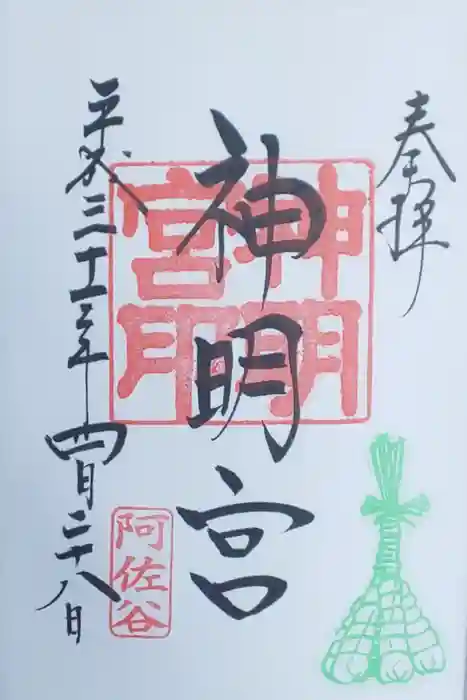 奉拝
神明宮
神明
宮印
平成三十年四月二十八日
阿佐谷